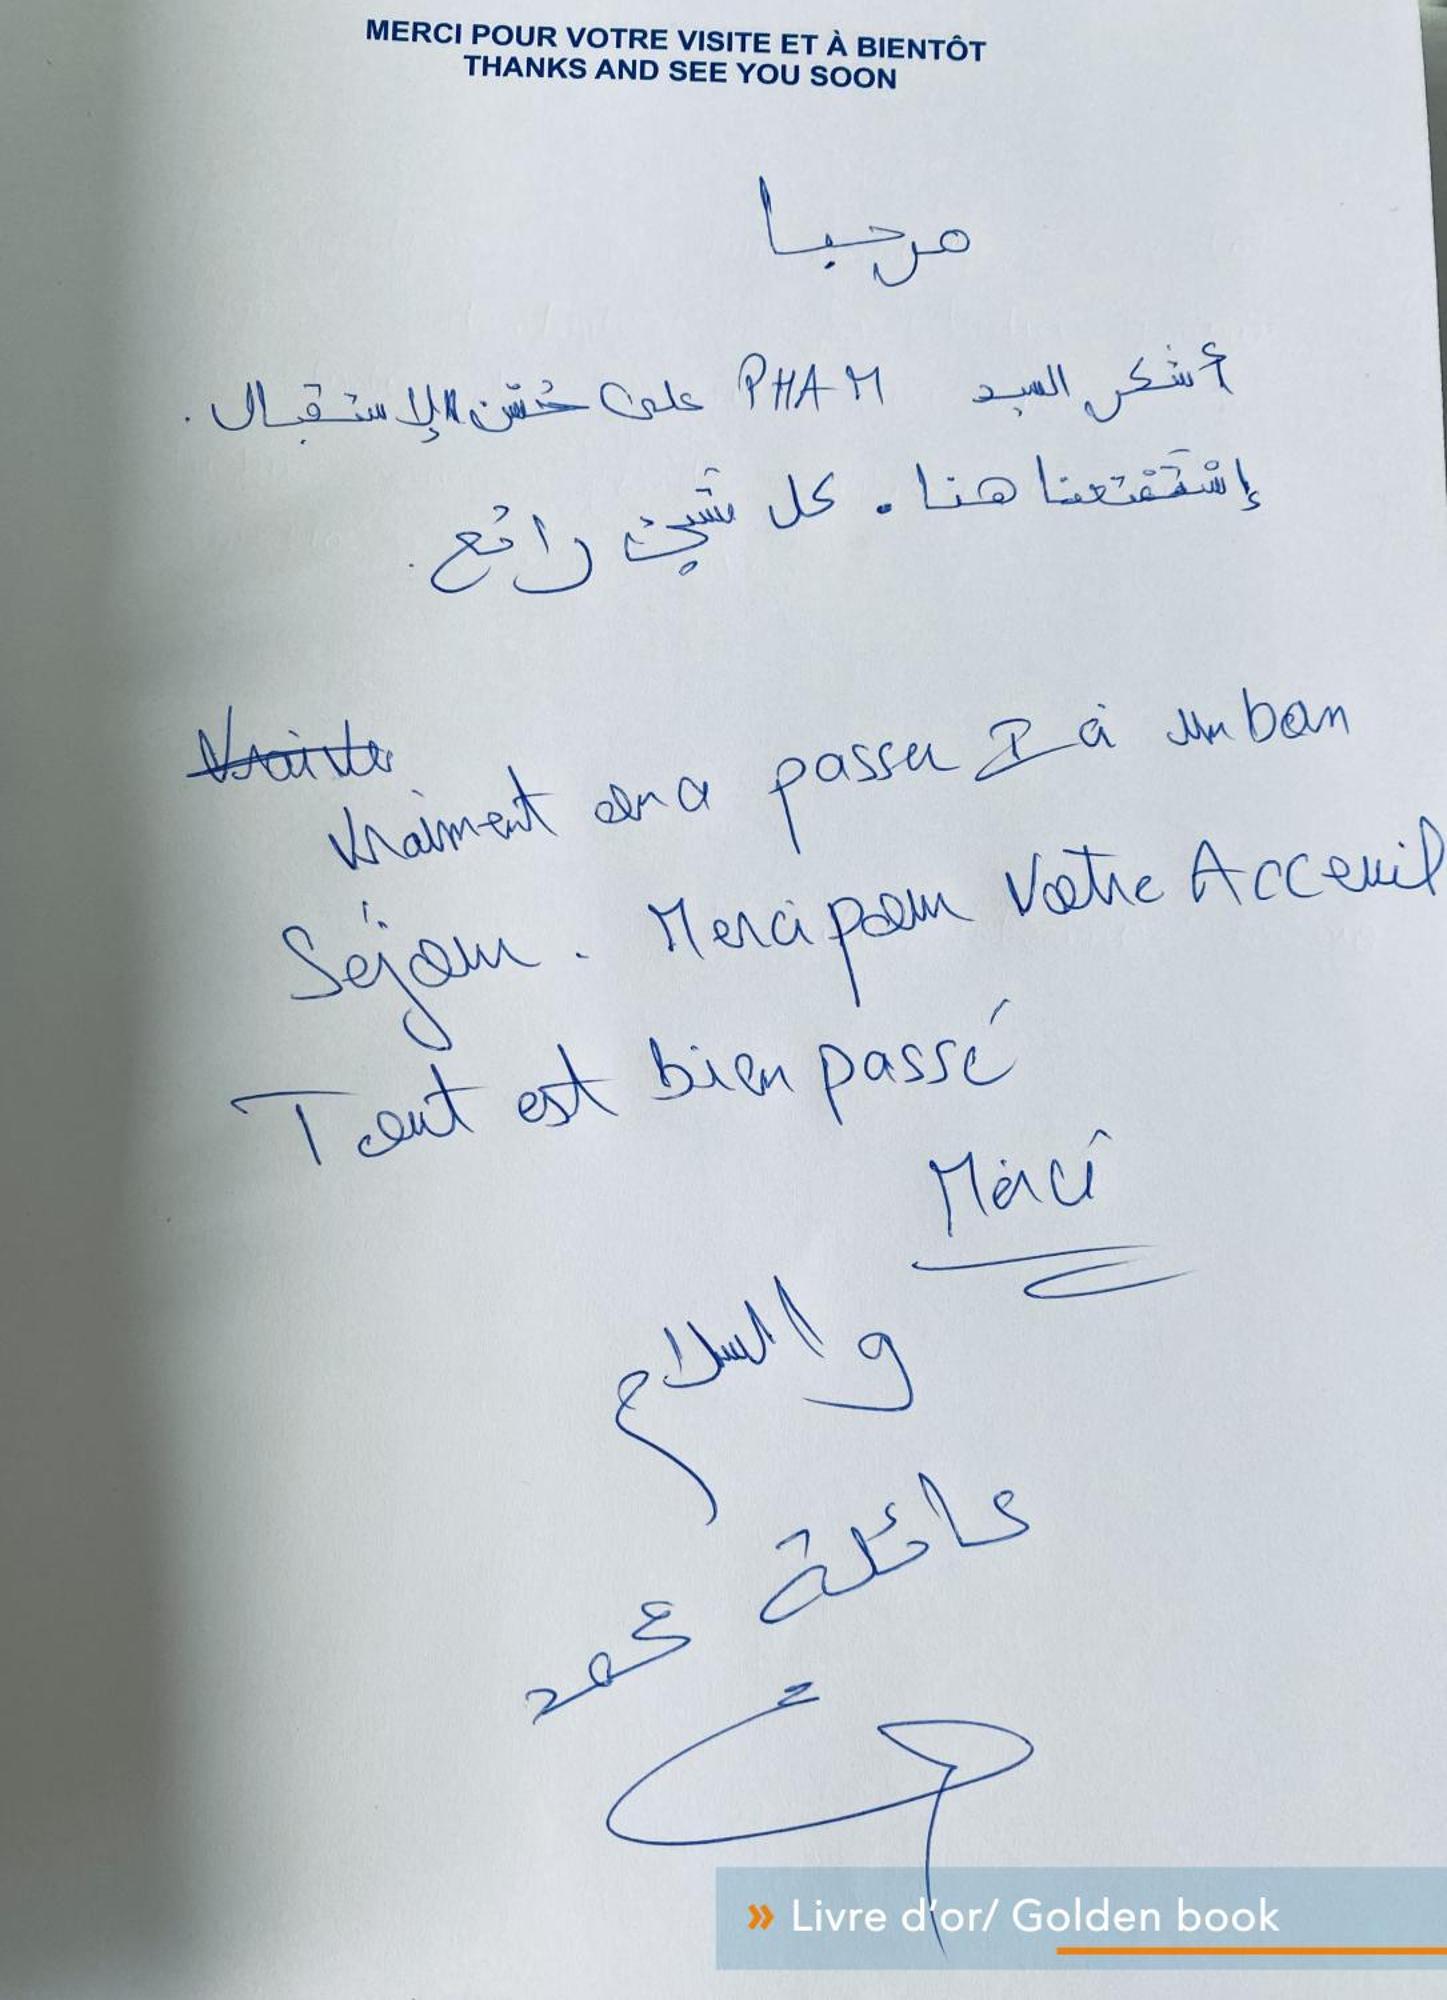 MERCI POUR VOTRE VISITE ET À BIENTÔT
THANKS AND SEE YOU SOON
مرحبا
أشكر السيد PHAM على حُسْن الإستقبال.
إسْتَمْتعنا هنا. كل شَيئ رائع.
vraiment on a passer à un bon
Séjour. Merci pour Votre Acceuil
Tout est bien passé
Merci
والسلام
عائلة محمد
» Livre d'or/ Golden book